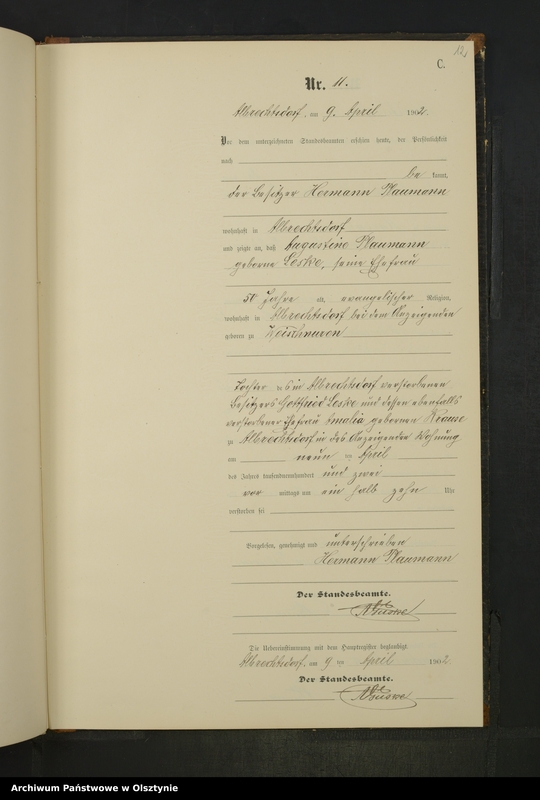 12,
C.
Nr. 11.
Albrechtsdorf, am 9. April 1902.
Vor dem unterzeichneten Standesbeamten erschien heute, der Persönlichkeit
nach
be kannt,
der Besitzer Hermann Naumann
wohnhaft in Albrechtsdorf
und zeigte an, daß Augustine Naumann
geborne Leske, seine Ehefrau
50 Jahre alt, evangelischer Religion,
wohnhaft in Albrechtsdorf bei dem Anzeigenden
geboren zu
Tochter des in Albrechtsdorf verstorbenen
Besitzers Gottfried Leske und dessen ebenfalls
verstorbener Ehefrau Amalia gebornen Krause
zu Albrechtsdorf in des Anzeigenden Wohnung
am neun ten April
des Jahres tausendneunhundert und zwei
vor mittags um ein halb zehn Uhr
verstorben sei
Vorgelesen, genehmigt und unterschrieben
Hermann Naumann
Der Standesbeamte.
Die Uebereinstimmung mit dem Hauptregister beglaubigt.
Albrechtsdorf, am 9 ten April 1902.
Der Standesbeamte.
Archiwum Państwowe w Olsztynie